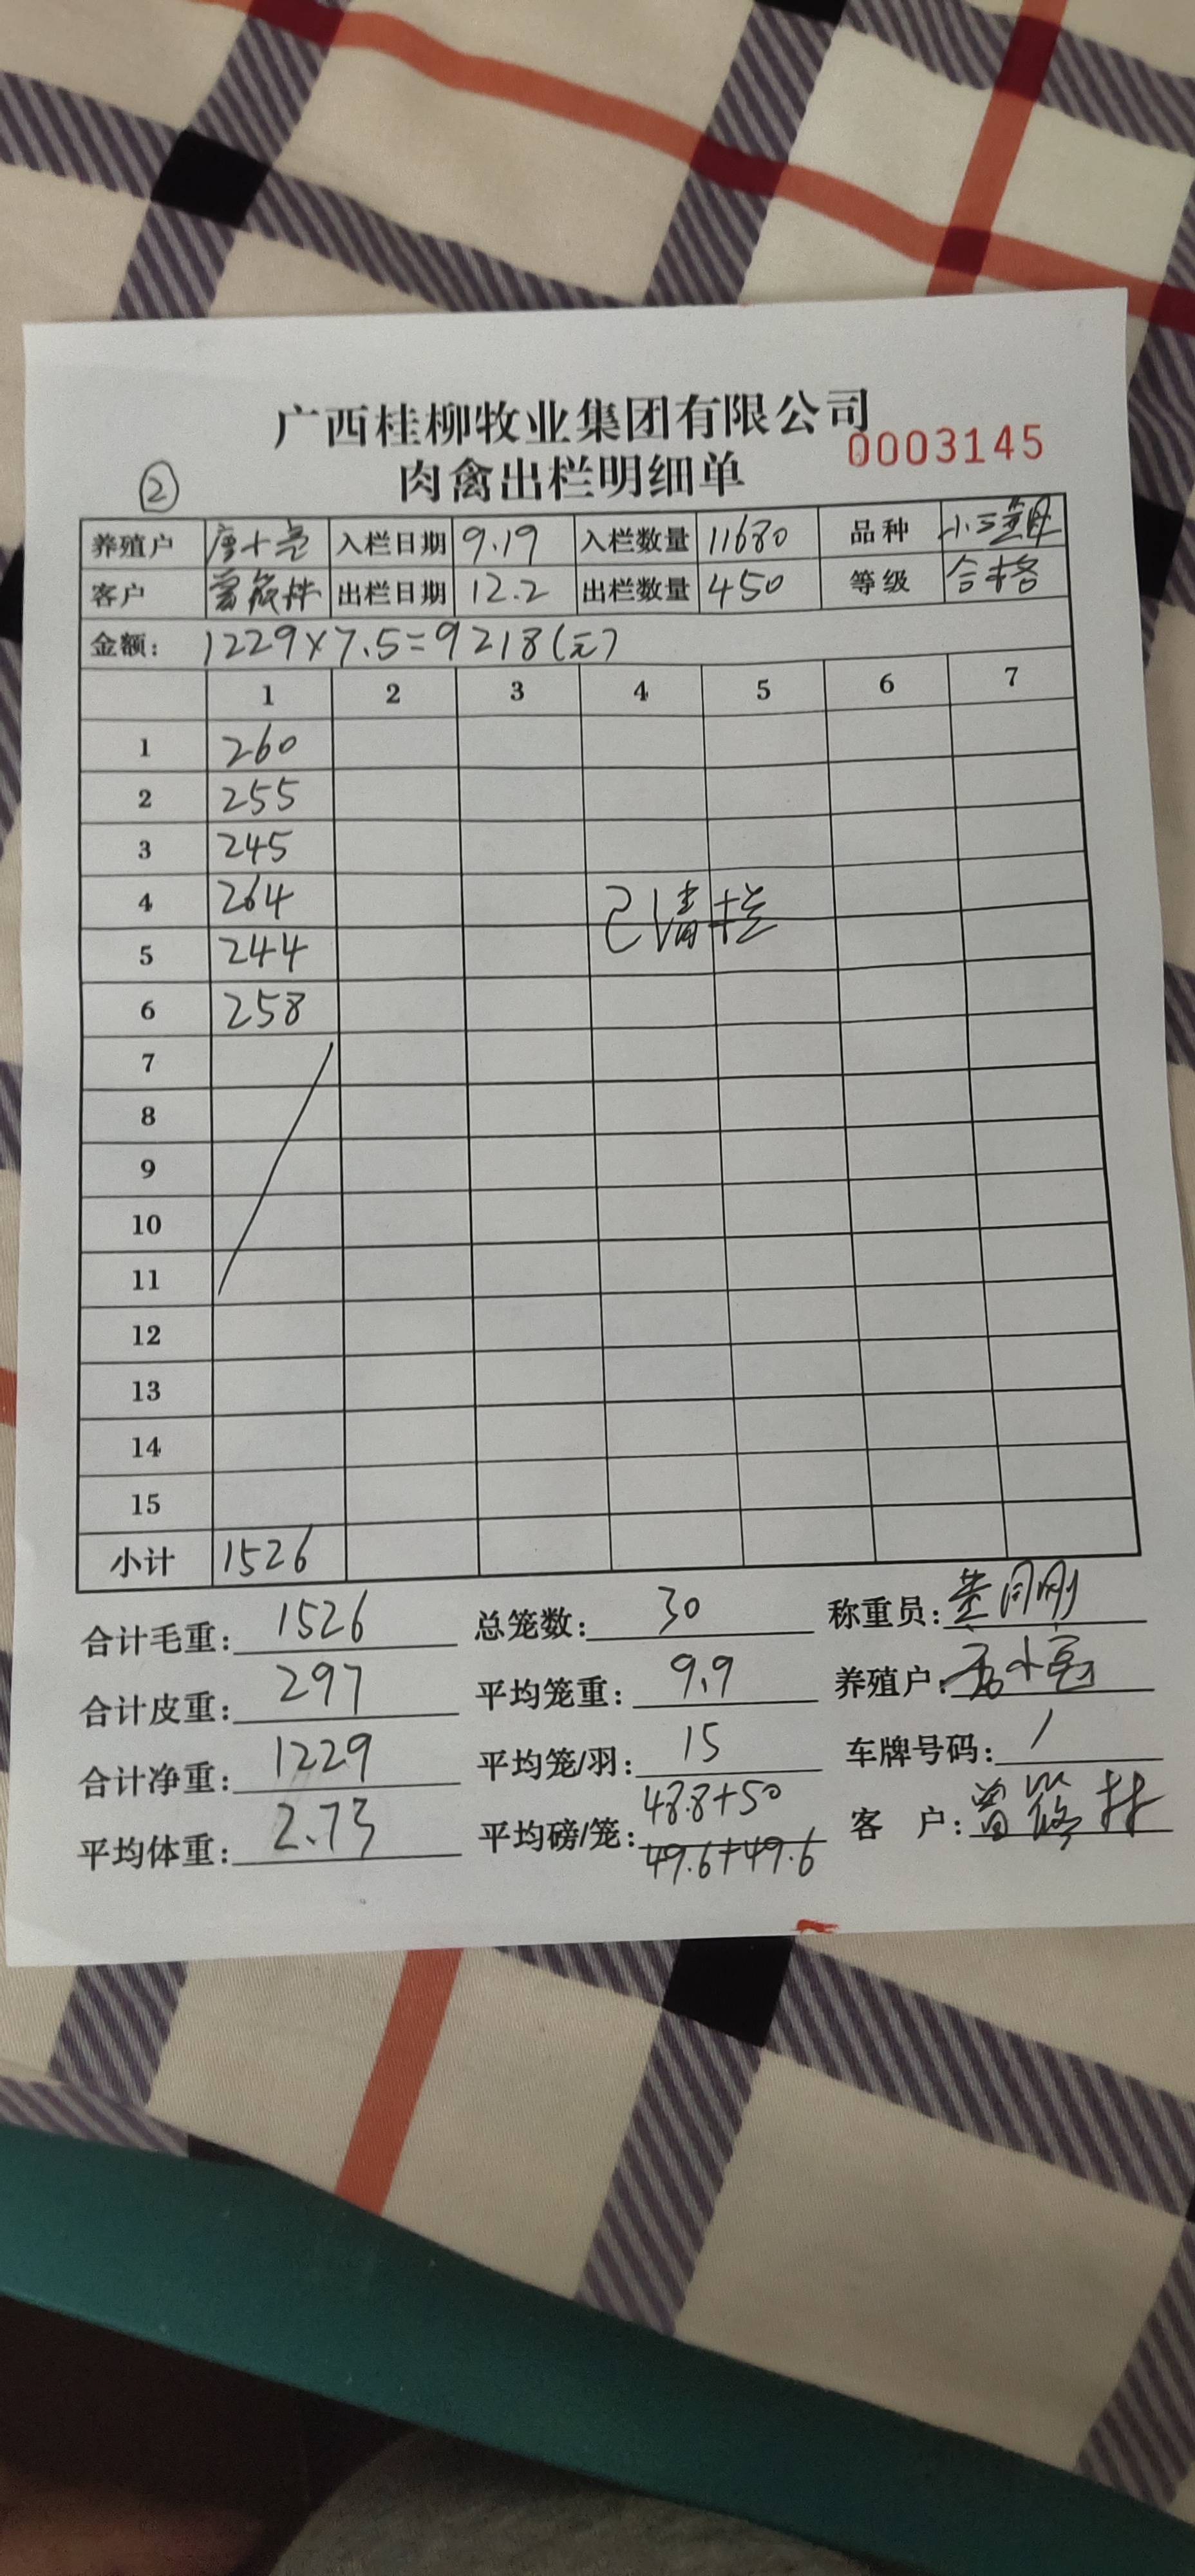 广西桂柳牧业集团有限公司
0003145
② 肉禽出栏明细单
养殖户 唐小亮 入栏日期 9.19 入栏数量 11680 品种 小三黄母
客户 曾筱林 出栏日期 12.2 出栏数量 450 等级 合格
金额: 1229×7.5=9218(元)
1 2 3 4 5 6 7
1 260
2 255
3 245
4 264
已清栏
5 244
6 258
7
8
9
10
11
12
13
14
15
小计 1526
合计毛重: 1526 总笼数: 30 称重员:
合计皮重: 297 平均笼重: 9.9 养殖户: 唐小亮
合计净重: 1229 平均笼/羽: 15 车牌号码: /
平均体重: 2.73 平均磅/笼: 48.8+50 客 户: 曾筱林
49.6+49.6